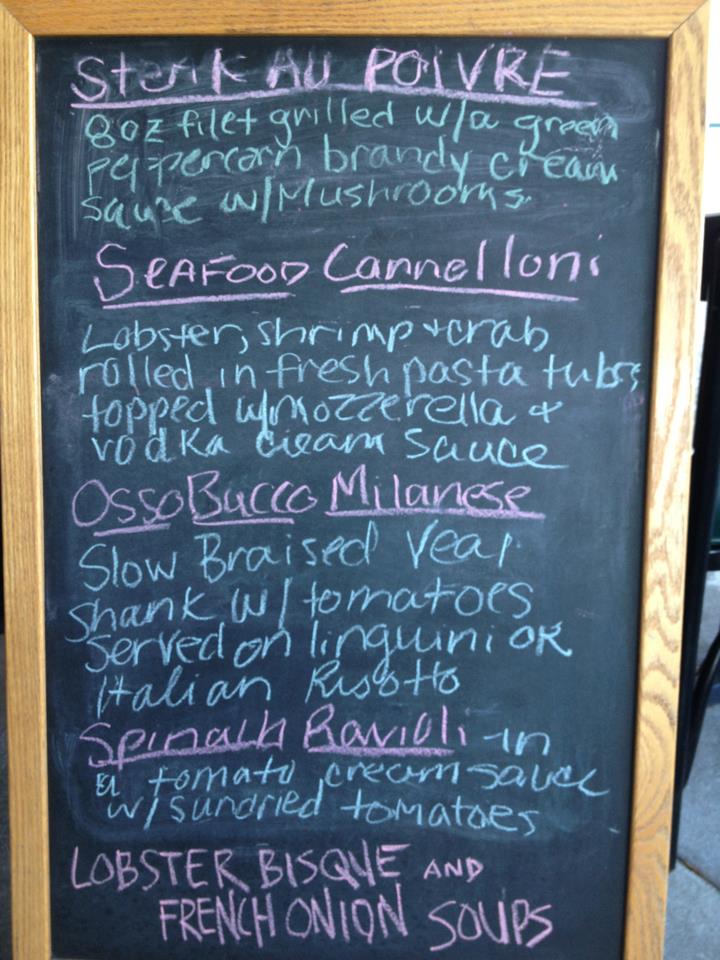 Steak AU POIVRE
8oz filet grilled w/a green
peppercorn brandy cream
sauce w/Mushrooms
SEAFOOD Cannelloni
Lobster, shrimp + crab
rolled in fresh pasta tubes
topped w/mozzerella +
vodka cream sauce
Osso Bucco Milanese
Slow Braised Veal
shank w/ tomatoes
served on linguini OR
Italian Risotto
Spinach Ravioli in
a tomato cream sauce
w/sundried tomatoes
LOBSTER BISQUE AND
FRENCH ONION SOUPS